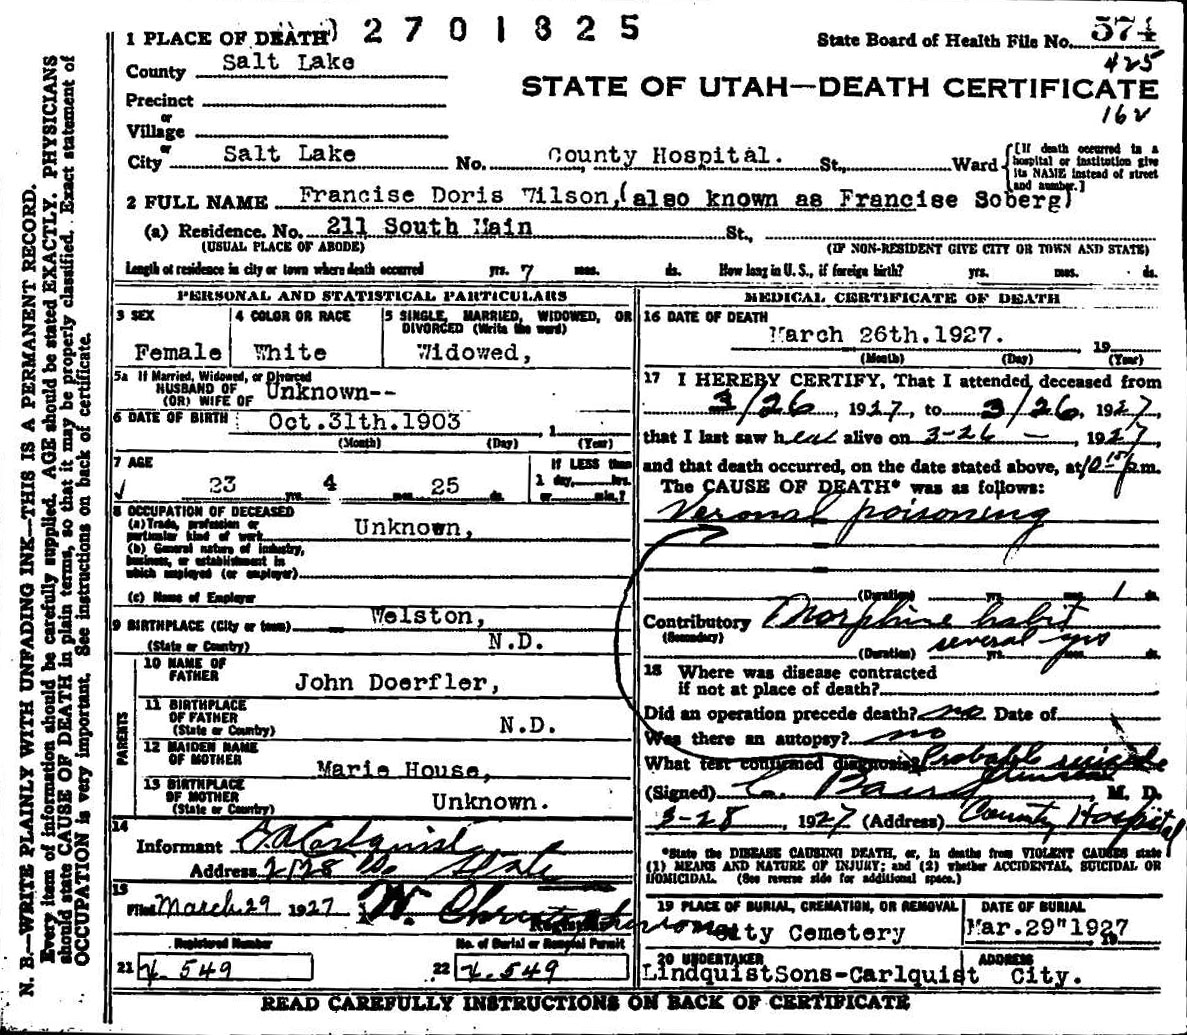 1 PLACE OF DEATH) 2701825
State Board of Health File No. 574
425
County Salt Lake
STATE OF UTAH—DEATH CERTIFICATE
162
Precinct
or
Village
or
City Salt Lake No. County Hospital. St., Ward
[If death occurred in a
hospital or institution give
its NAME instead of street
and number.]
2 FULL NAME Francise Doris Wilson, (also known as Francise Soberg)
(a) Residence. No. 211 South Main St.,
(USUAL PLACE OF ABODE) (IF NON-RESIDENT GIVE CITY OR TOWN AND STATE)
Length of residence in city or town where death occurred yrs. 7 mos. ds. How long in U. S., if foreign birth? yrs. mos. ds.
PERSONAL AND STATISTICAL PARTICULARS
3 SEX
Female
4 COLOR OR RACE
White
5 SINGLE, MARRIED, WIDOWED, OR
DIVORCED (Write the word)
Widowed,
5a If Married, Widowed, or Divorced
HUSBAND OF
(OR) WIFE OF Unknown--
6 DATE OF BIRTH Oct.31th.1903 , 1
(Month) (Day) (Year)
7 AGE
23 yrs. 4 mos. 25 ds.
If LESS than
1 day, hrs.
or min.?
8 OCCUPATION OF DECEASED
(a) Trade, profession or
particular kind of work Unknown,
(b) General nature of industry,
business, or establishment in
which employed (or employer)
(c) Name of Employer
9 BIRTHPLACE (City or town) Welston,
(State or Country) N.D.
PARENTS
10 NAME OF
FATHER John Doerfler,
11 BIRTHPLACE
OF FATHER
(State or Country) N.D.
12 MAIDEN NAME
OF MOTHER Marie House,
13 BIRTHPLACE
OF MOTHER
(State or Country) Unknown.
14
Informant C A Carlquist
Address 2128 So State
15
Filed March 29 1927 W. Christopherson
Registrar
Registered Number No. of Burial or Removal Permit
21 549 22 549
MEDICAL CERTIFICATE OF DEATH
16 DATE OF DEATH
March 26th.1927. , 19
(Month) (Day) (Year)
17 I HEREBY CERTIFY, That I attended deceased from
3/26, 1927, to 3/26, 1927,
that I last saw her alive on 3-26 — , 1927
and that death occurred, on the date stated above, at 10 15 p.m.
The CAUSE OF DEATH* was as follows:
Veronal poisoning
(Duration) yrs. mos. 1 ds.
Contributory Morphine habit
(Secondary)
(Duration) several yrs yrs. mos. ds.
18 Where was disease contracted
if not at place of death?
Did an operation precede death? no Date of
Was there an autopsy? no
What test confirmed diagnosis? Probable suicide
(Signed) M. D.
3-28, 1927 (Address) County Hospital
*State the DISEASE CAUSING DEATH, or, in deaths from VIOLENT CAUSES state
(1) MEANS AND NATURE OF INJURY; and (2) whether ACCIDENTAL, SUICIDAL OR
HOMICIDAL. (See reverse side for additional space.)
19 PLACE OF BURIAL, CREMATION, OR REMOVAL
City Cemetery
DATE OF BURIAL
Mar.29"1927
19
20 UNDERTAKER
LindquistSons-Carlquist
ADDRESS
City.
READ CAREFULLY INSTRUCTIONS ON BACK OF CERTIFICATE
N. B.—WRITE PLAINLY WITH UNFADING INK—THIS IS A PERMANENT RECORD.
Every item of information should be carefully supplied. AGE should be stated EXACTLY. PHYSICIANS
should state CAUSE OF DEATH in plain terms, so that it may be properly classified. Exact statement of
OCCUPATION is very important. See instructions on back of certificate.